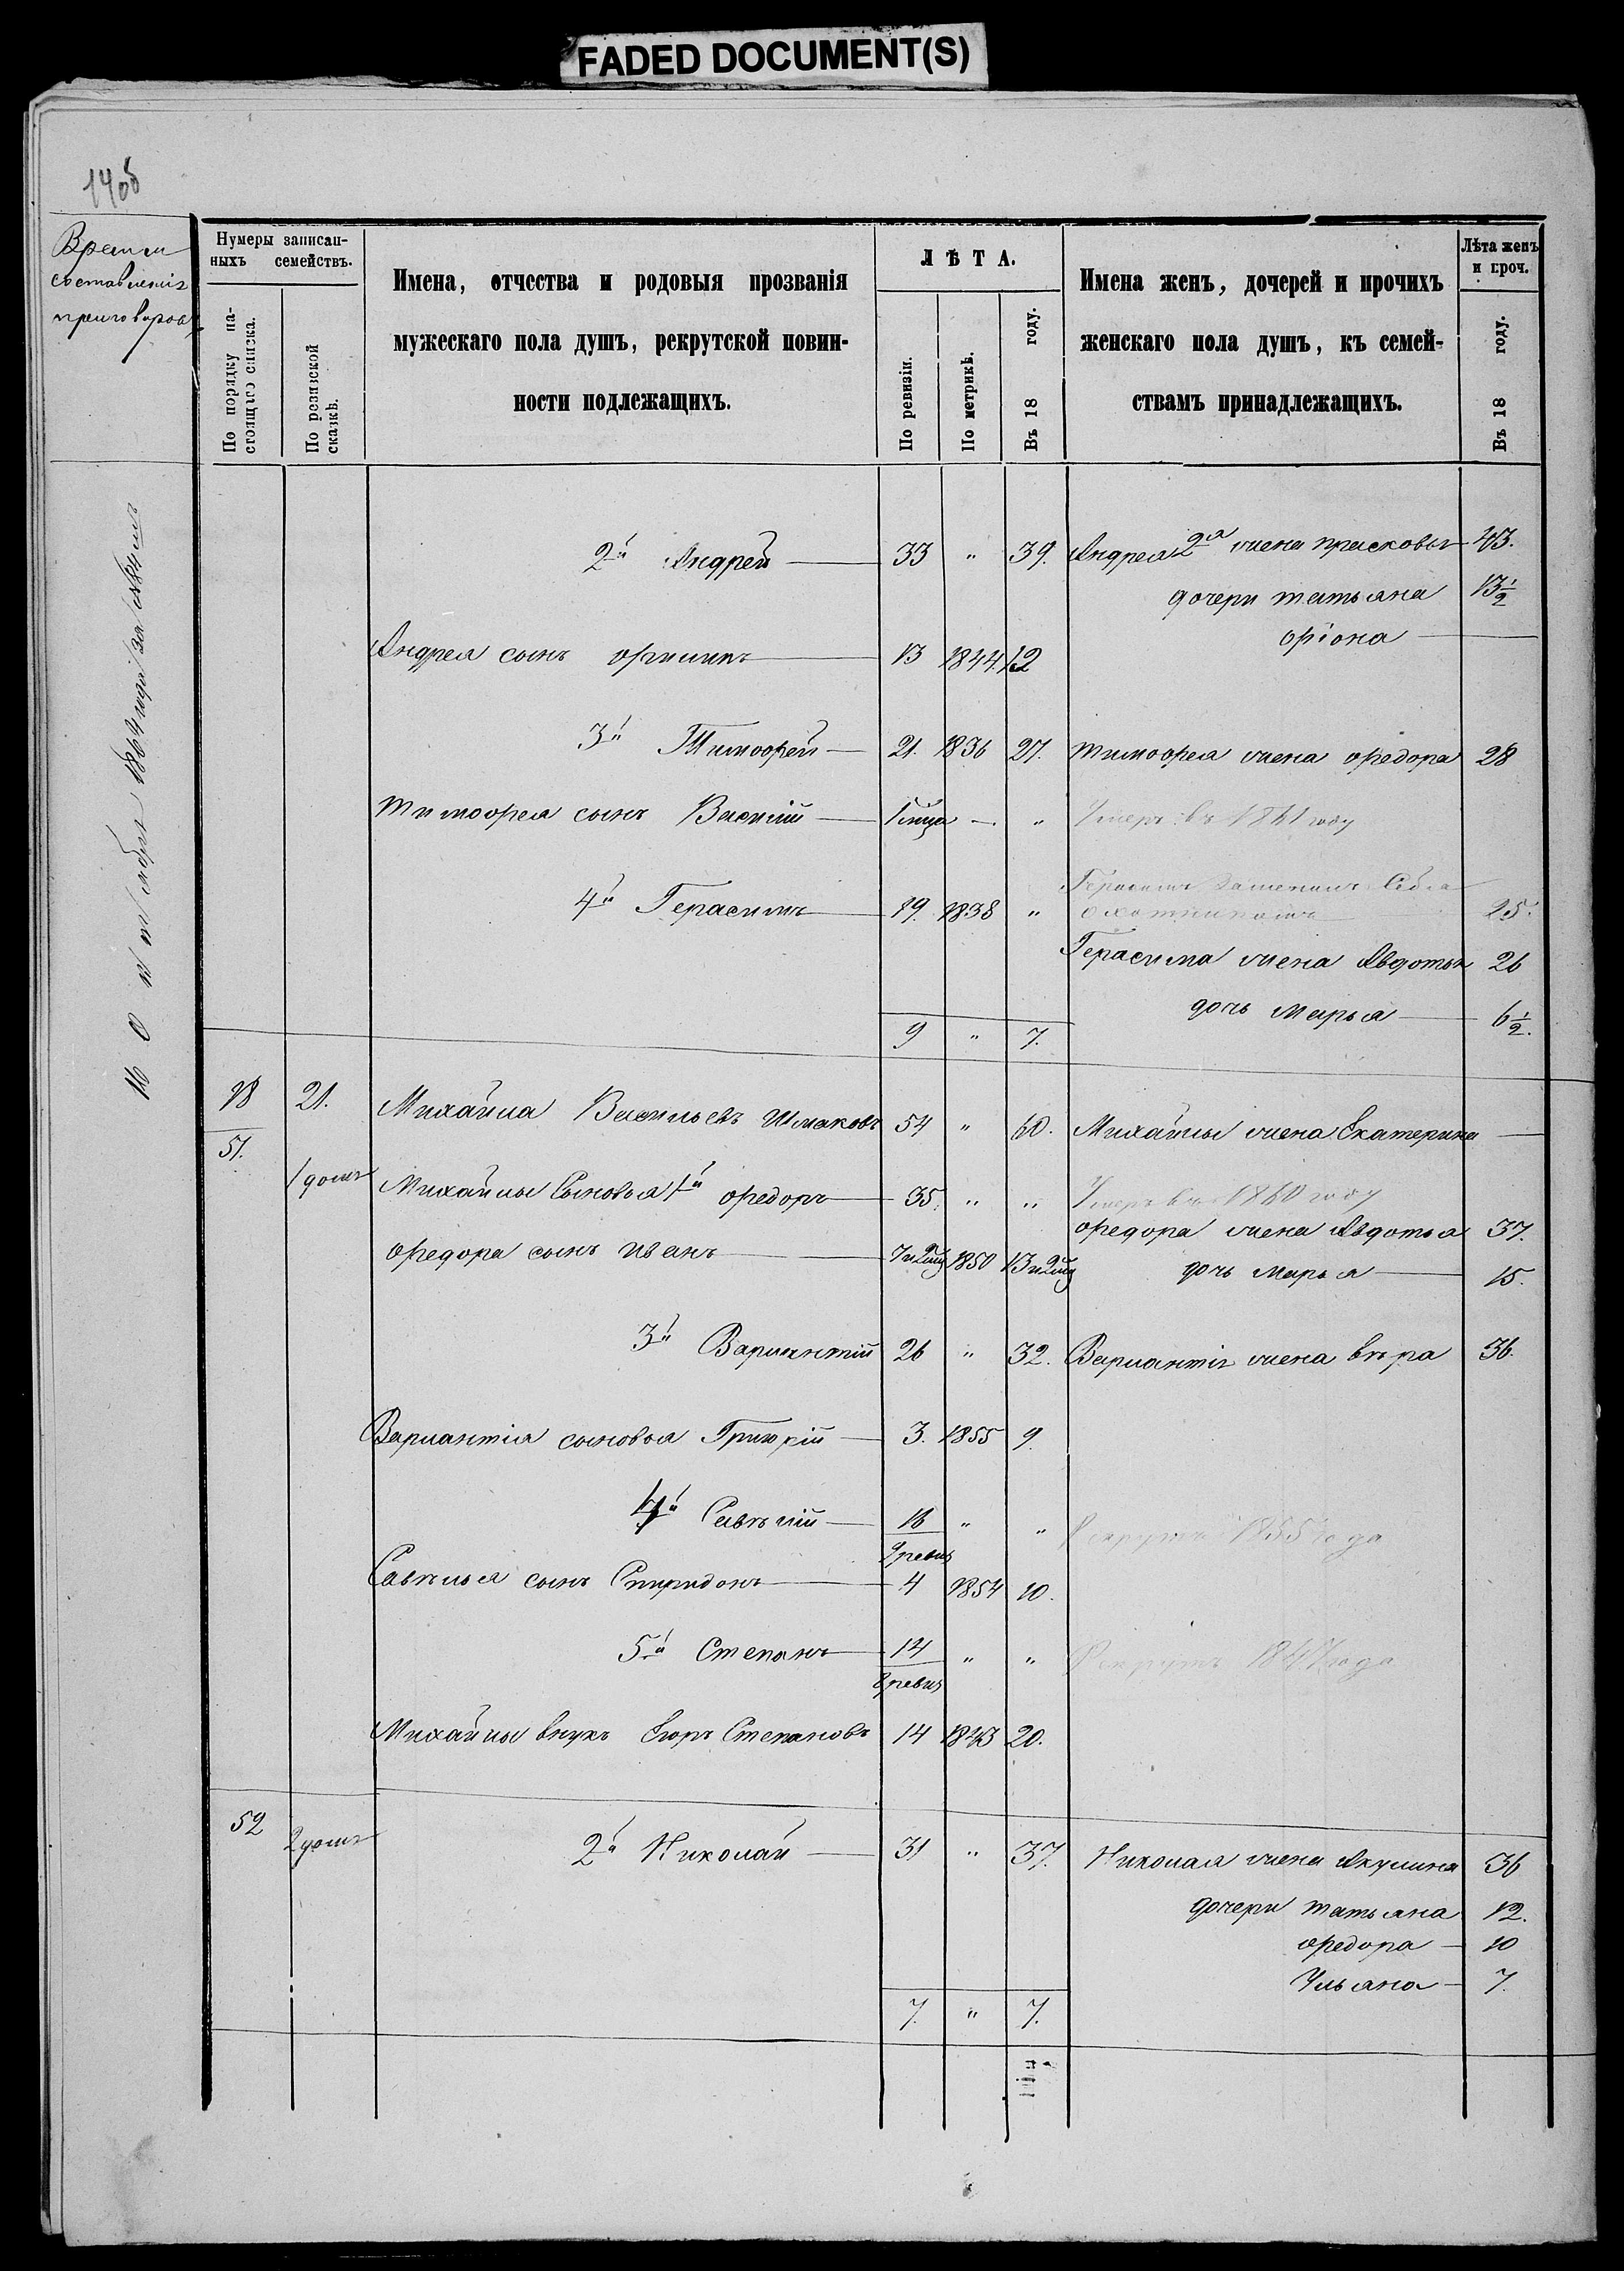 FADED DOCUMENT(S)
Время
составленія
приговоровъ
Нумеры записан-
ныхъ семействъ.
По порядку на-
стоящаго списка.
По ревизской
сказкѣ.
Имена, отчества и родовыя прозванія
мужескаго пола душъ, рекрутской повин-
ности подлежащихъ.
ЛѢТА.
По ревизіи.
По метрикѣ.
Въ 18 году.
Имена женъ, дочерей и прочихъ
женскаго пола душъ, къ семей-
ствамъ принадлежащихъ.
Лѣта женъ
и проч.
Въ 18 году.
16 Октября 1864 года
2й Андрей 33 " 39. Андрея 2я жена Прасковья 43.
дочери Татьяна 13½
Фіона
Андрея сынъ 13 1844 12
3й Тимофей 21. 1836 27. Тимофея жена Федора 28
Тимофея сынъ Василій 1 " Умеръ въ 1861 году
4й Герасимъ 19. 1838 " Герасимъ
охотникомъ 25.
Герасима жена Авдотья 26
дочь Марья 6½.
9 " 7.
18 21. Михайла Васильевъ Шмаковъ 54 " 60. Михайлы жена Екатерина
51.
1 домъ Михайлы сыновья 1й Федоръ 35. " " Умеръ въ 1860 году
Федора жена Авдотья 37.
Федора сынъ Иванъ 7 и 2 мц 1850 13 и 2 мц дочь Марья 15.
3й Варлантій 26 " 32. Варлантія жена Вѣра 36.
Варлантія сыновья Григорій 3. 1855 9.
4й Савѣлій 16 " " Рекрутъ 1855 года
9 ревиз
Савѣлья сынъ Спиридонъ 4 1854 10.
5й Степанъ 14 " " Рекрутъ года
8 ревиз
Михайлы внукъ Егоръ Степановъ 14 1843 20.
52 2 домъ 2й Николай 31 " 37. Николая жена Акулина 36
дочери Татьяна 12.
Федора 10
Ульяна 7.
7. " 7.